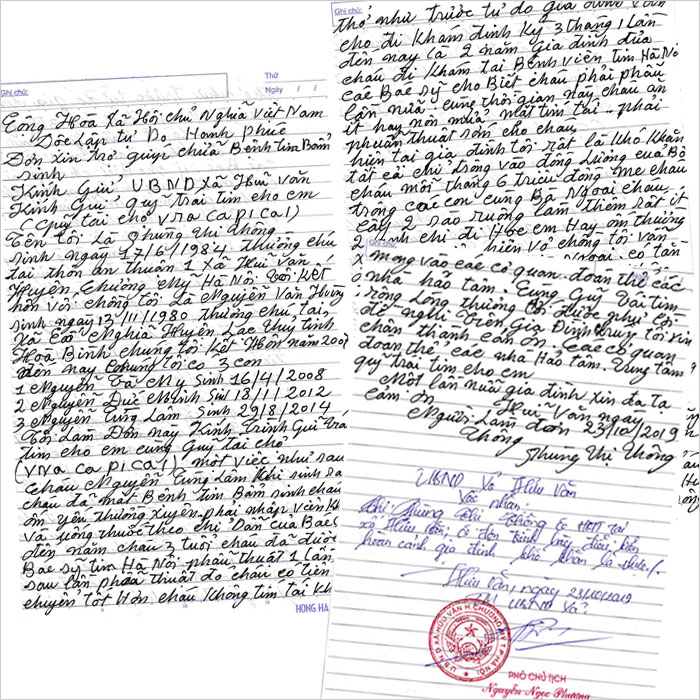 Ghi chú:
Thứ
Ngày / /
Cộng Hoà Xã Hội chủ Nghĩa Việt Nam
Độc Lập Tự Do Hạnh phúc
Đơn xin trợ quyĩ chữa Bệnh tim Bẩm
sinh
Kính Gửi UBND Xã Hữu Văn
Kính Gửi quỹ trái tim cho em
(quỹ tài cho vna capical)
Tên tôi là phùng thị thông
sinh ngày 17/6/1984 thường chú
tại thôn an thuận 1 xã Hữu Văn
Huyện Chương Mỹ Hà Nội. Tôi Kết
hôn với chồng tôi là Nguyễn Văn Hường
sinh ngày 13/11/1980 thường chú tại
xã Nghĩa Huyện Lạc Thuỷ tỉnh
Hoà Bình chúng tôi Kết Hôn năm 2007
đến nay chúng tôi có 3 con
1 Nguyễn Hà My sinh 16/4/2008
2 Nguyễn Đức Minh sin 18/11/2012
3 Nguyễn Tùng Lam sinh 29/8/2014
Tôi Làm Đơn này Kính Trình Gửi trá
tim cho em cùng Guỹ tài chợ
(vna capical) một việc như sau
cháu Nguyễn Tùng Lam Khi sinh ra
cháu đã mắc Bệnh tim Bẩm sinh cháu
ốm yếu thường xuyên phải nhập viện Kh
và uống thuốc theo chỉ dẫn của Bác s
đến năm cháu 3 tuổi cháu đã được
Bác sỹ tim Hà Nội phẫu thuật 1 lần
sau lần phẫu thuật đó cháu có tiến
chuyển tốt Hơn cháu Không tím tái kh
HONG HA
Ghi chú:
thở như trước tự do gia đình vẫn
cho đi Khám định Kỳ 3 tháng 1 lần
đến nay là 2 năm gia đình đưa
cháu đi Khám tại Bệnh viện tim Hà Nô
các Bác sỹ cho Biết cháu phải phẫu
lần nữa cùng thời gian này cháu ăn
ít hay nôn mửa mắt tím tái.. phải
phuẫn thuật sớm cho cháu
hiện tại gia đình tôi rất là Khó Khăn
tất cả chỉ trông vào đồng lương của Bố
cháu mỗi tháng 6 triệu đồng mẹ cháu
trông các con cùng Bà Ngoại cháu
cấy 2 sào ruộng làm thêm rất ít
2 anh chị đi Học em Hay ốm thường
vợ chồng tôi vẫn
Ghi chú
mong vào các cơ quan đoàn thể các
nhà hảo tâm. Cùng Guỹ trái tim
rộng lòng thương tôi được như lời
đề nghị trên Gia Đình chúng tôi xin
chân thành cảm ơn. các cơ quan
đoàn thể các nhà Hảo tâm.
quỹ trái tim cho em
Một lần nữa gia đình xin đa tạ
cảm ơn Hữu Văn ngày
Người Làm đơn 23/10/2019
Thông
Phùng Thị Thông
UBND Xã Hữu Văn
Xác nhận:
Chị Phùng Thị Thông có HKTT tại
xã Hữu Văn, có đơn trình bày điều kiện
hoàn cảnh gia đình khó khăn là thực./.
Hữu Văn, ngày 23/10/2019
TM UBND Xã
U.B.N.D XÃ HỮU VĂN H. CHƯƠNG MỸ T.P HÀ NỘI
PHÓ CHỦ TỊCH
Nguyễn Ngọc Phương